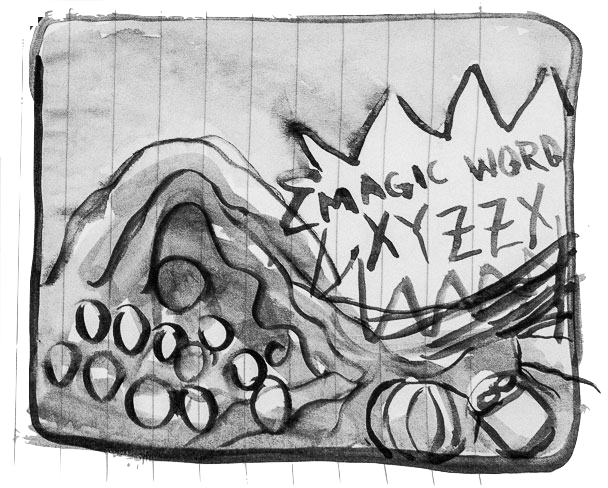 MAGIC WORD
XYZZY